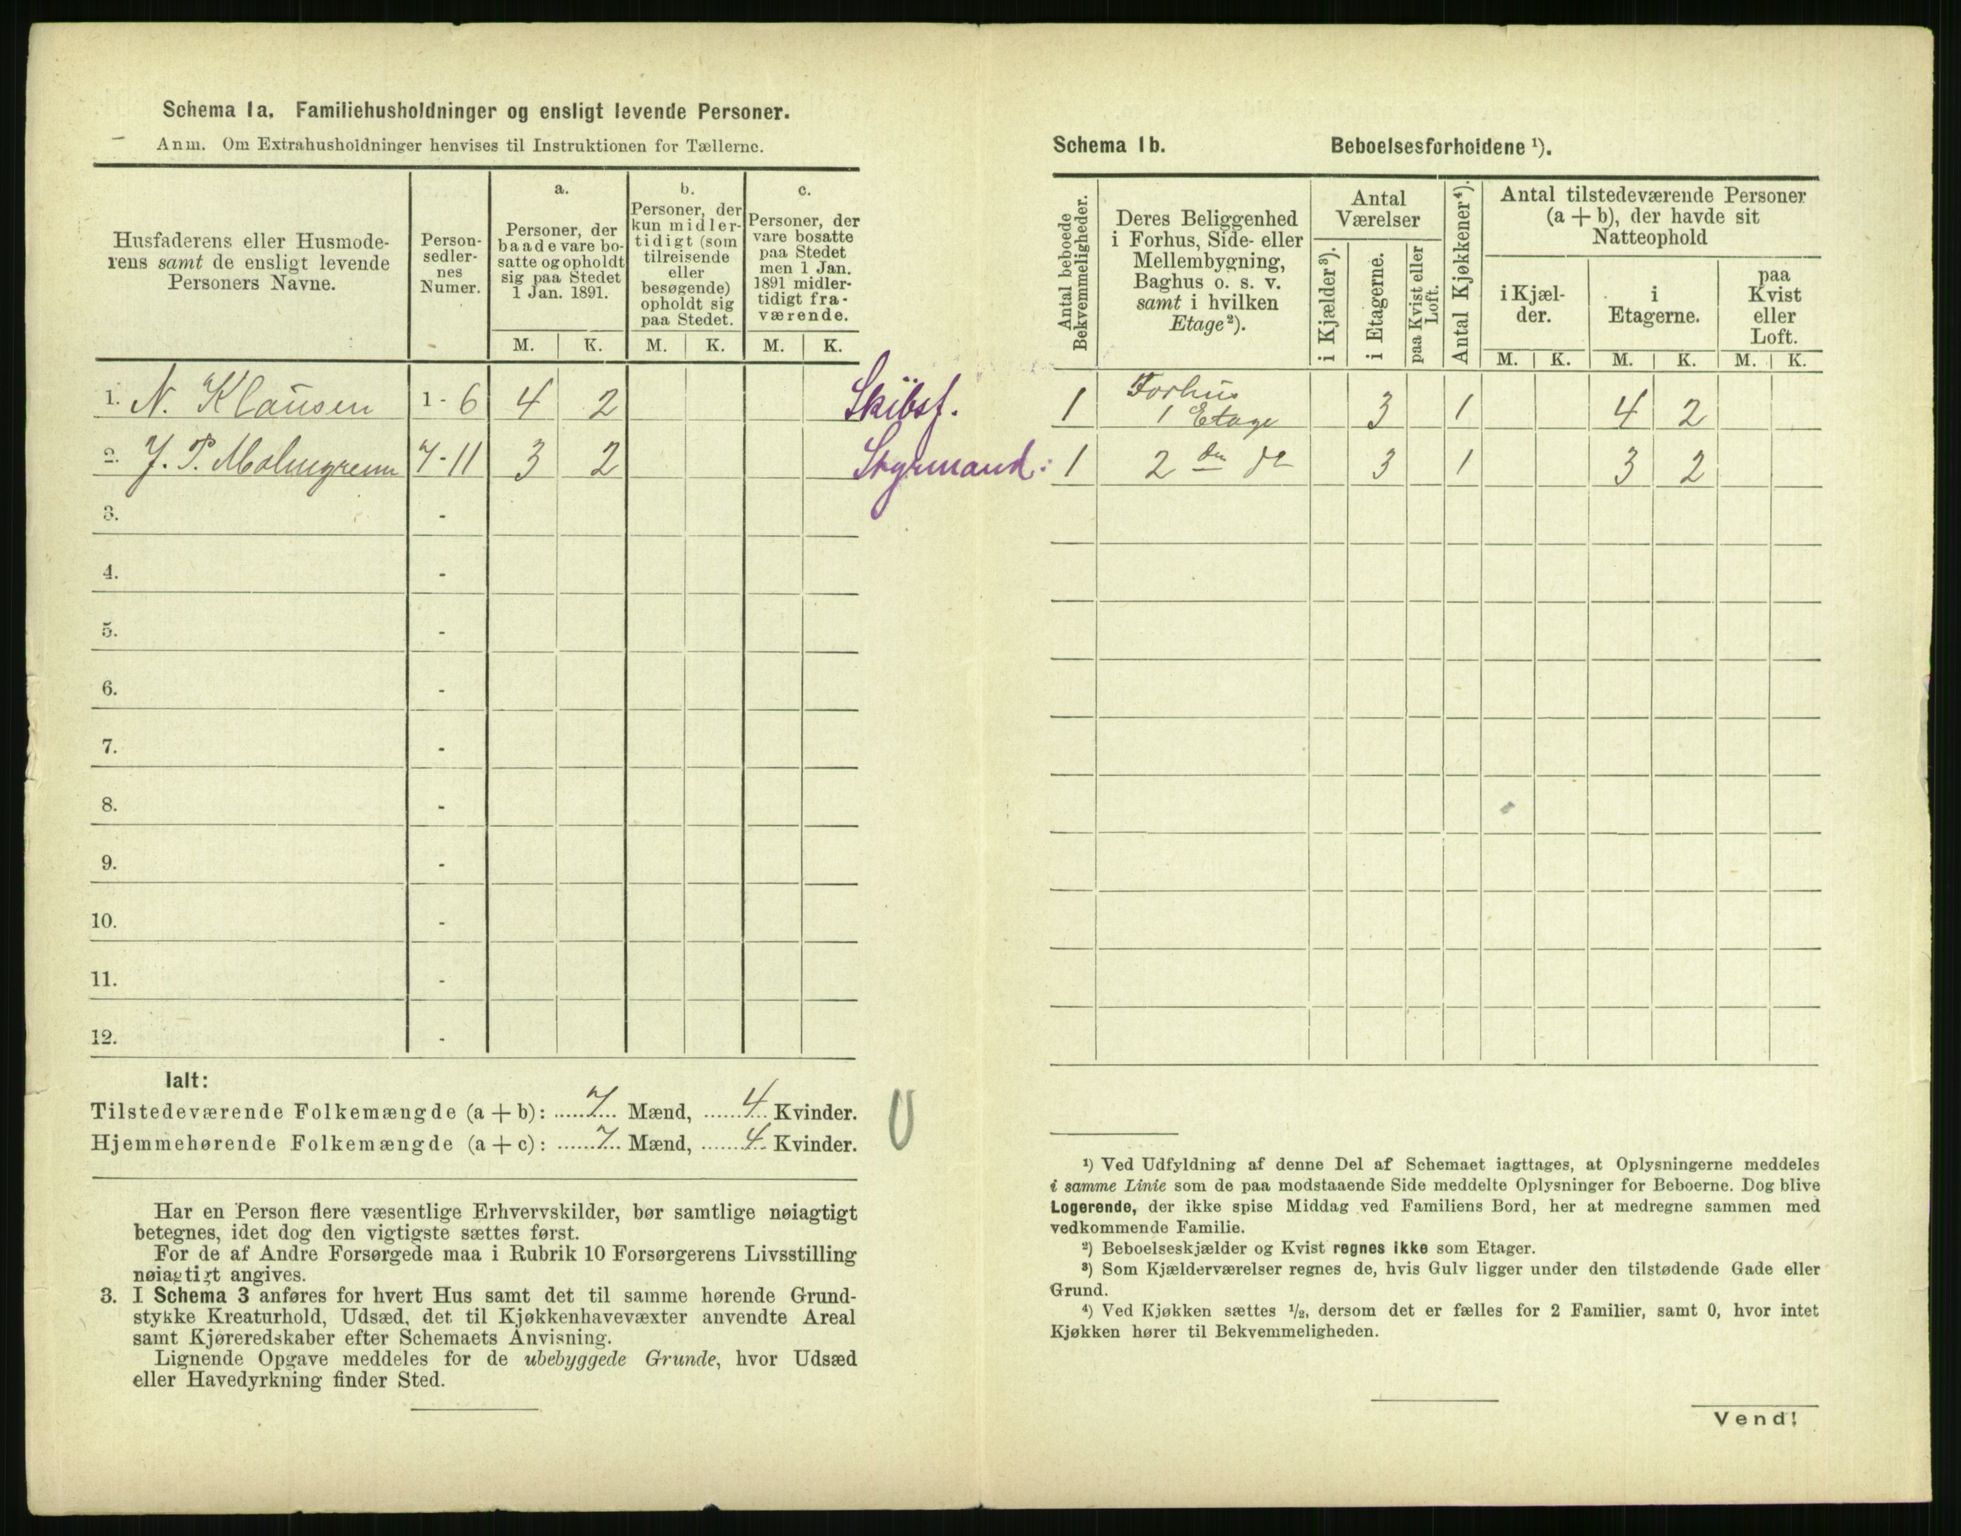 Schema 1a. Familiehusholdninger og ensligt levende Personer.
Anm. Om Extrahusholdninger henvises til Instruktionen for Tællerne.
Husfaderens eller Husmoderens samt de ensligt levende Personers Navne.
Personsedlernes Numer.
a. Personer, der baade vare bosatte og opholdt sig paa Stedet 1 Jan. 1891.
b. Personer, der kun midlertidigt (som tilreisende eller besøgende) opholdt sig paa Stedet.
c. Personer, der vare bosatte paa Stedet men 1 Jan. 1891 midlertidigt fraværende.
M. K. M. K. M. K.
1. N. Klausen 1-6 4 2 Skibsf.
2. J. P. Malmgrenn 7-11 3 2 Styrmand:
3. -
4. -
5. -
6. -
7. -
8. -
9. -
10. -
11. -
12. -
Ialt:
Tilstedeværende Folkemængde (a + b): 7 Mænd, 4 Kvinder.
Hjemmehørende Folkemængde (a + c): 7 Mænd, 4 Kvinder.
Har en Person flere væsentlige Erhvervskilder, bør samtlige nøiagtigt
betegnes, idet dog den vigtigste sættes først.
For de af Andre Forsørgede maa i Rubrik 10 Forsørgerens Livsstilling
nøiagtigt angives.
3. I Schema 3 anføres for hvert Hus samt det til samme hørende Grund-
stykke Kreaturhold, Udsæd, det til Kjøkkenhavevæxter anvendte Areal
samt Kjøreredskaber efter Schemaets Anvisning.
Lignende Opgave meddeles for de ubebyggede Grunde, hvor Udsæd
eller Havedyrkning finder Sted.
Schema 1b. Beboelsesforholdene ¹).
Antal beboede Bekvemmeligheder.
Deres Beliggenhed i Forhus, Side- eller Mellembygning, Baghus o. s. v. samt i hvilken Etage ²).
Antal Værelser
i Kjælder ³).
i Etagerne.
paa Kvist eller Loft.
Antal Kjøkkener ⁴).
Antal tilstedeværende Personer (a + b), der havde sit Natteophold
i Kjælder.
i Etagerne.
paa Kvist eller Loft.
M. K. M. K. M. K.
1 Forhus 1 Etage 3 1 4 2
1 2 den do 3 1 3 2
¹) Ved Udfyldning af denne Del af Schemaet iagttages, at Oplysningerne meddeles
i samme Linie som de paa modstaaende Side meddelte Oplysninger for Beboerne. Dog blive
Logerende, der ikke spise Middag ved Familiens Bord, her at medregne sammen med
vedkommende Familie.
²) Beboelseskjælder og Kvist regnes ikke som Etager.
³) Som Kjælderværelser regnes de, hvis Gulv ligger under den tilstødende Gade eller
Grund.
⁴) Ved Kjøkken sættes ½, dersom det er fælles for 2 Familier, samt 0, hvor intet
Kjøkken hører til Bekvemmeligheden.
Vend!